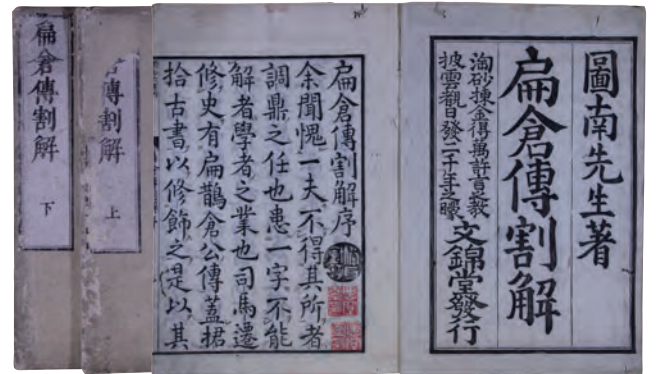 圖南先生著
扁倉傳割解
淘砂揀金得萬許言之教
披雲觀日發二千年之曚
文錦堂發行
扁倉傳割解序
余聞愧一夫不得其所者
調鼎之任也患一字不能
解者學者之業也司馬遷
修史有扁鵲倉公傳蓋捃
拾古書以修飾之是以其
倉傳割解
上
扁倉傳割解
下